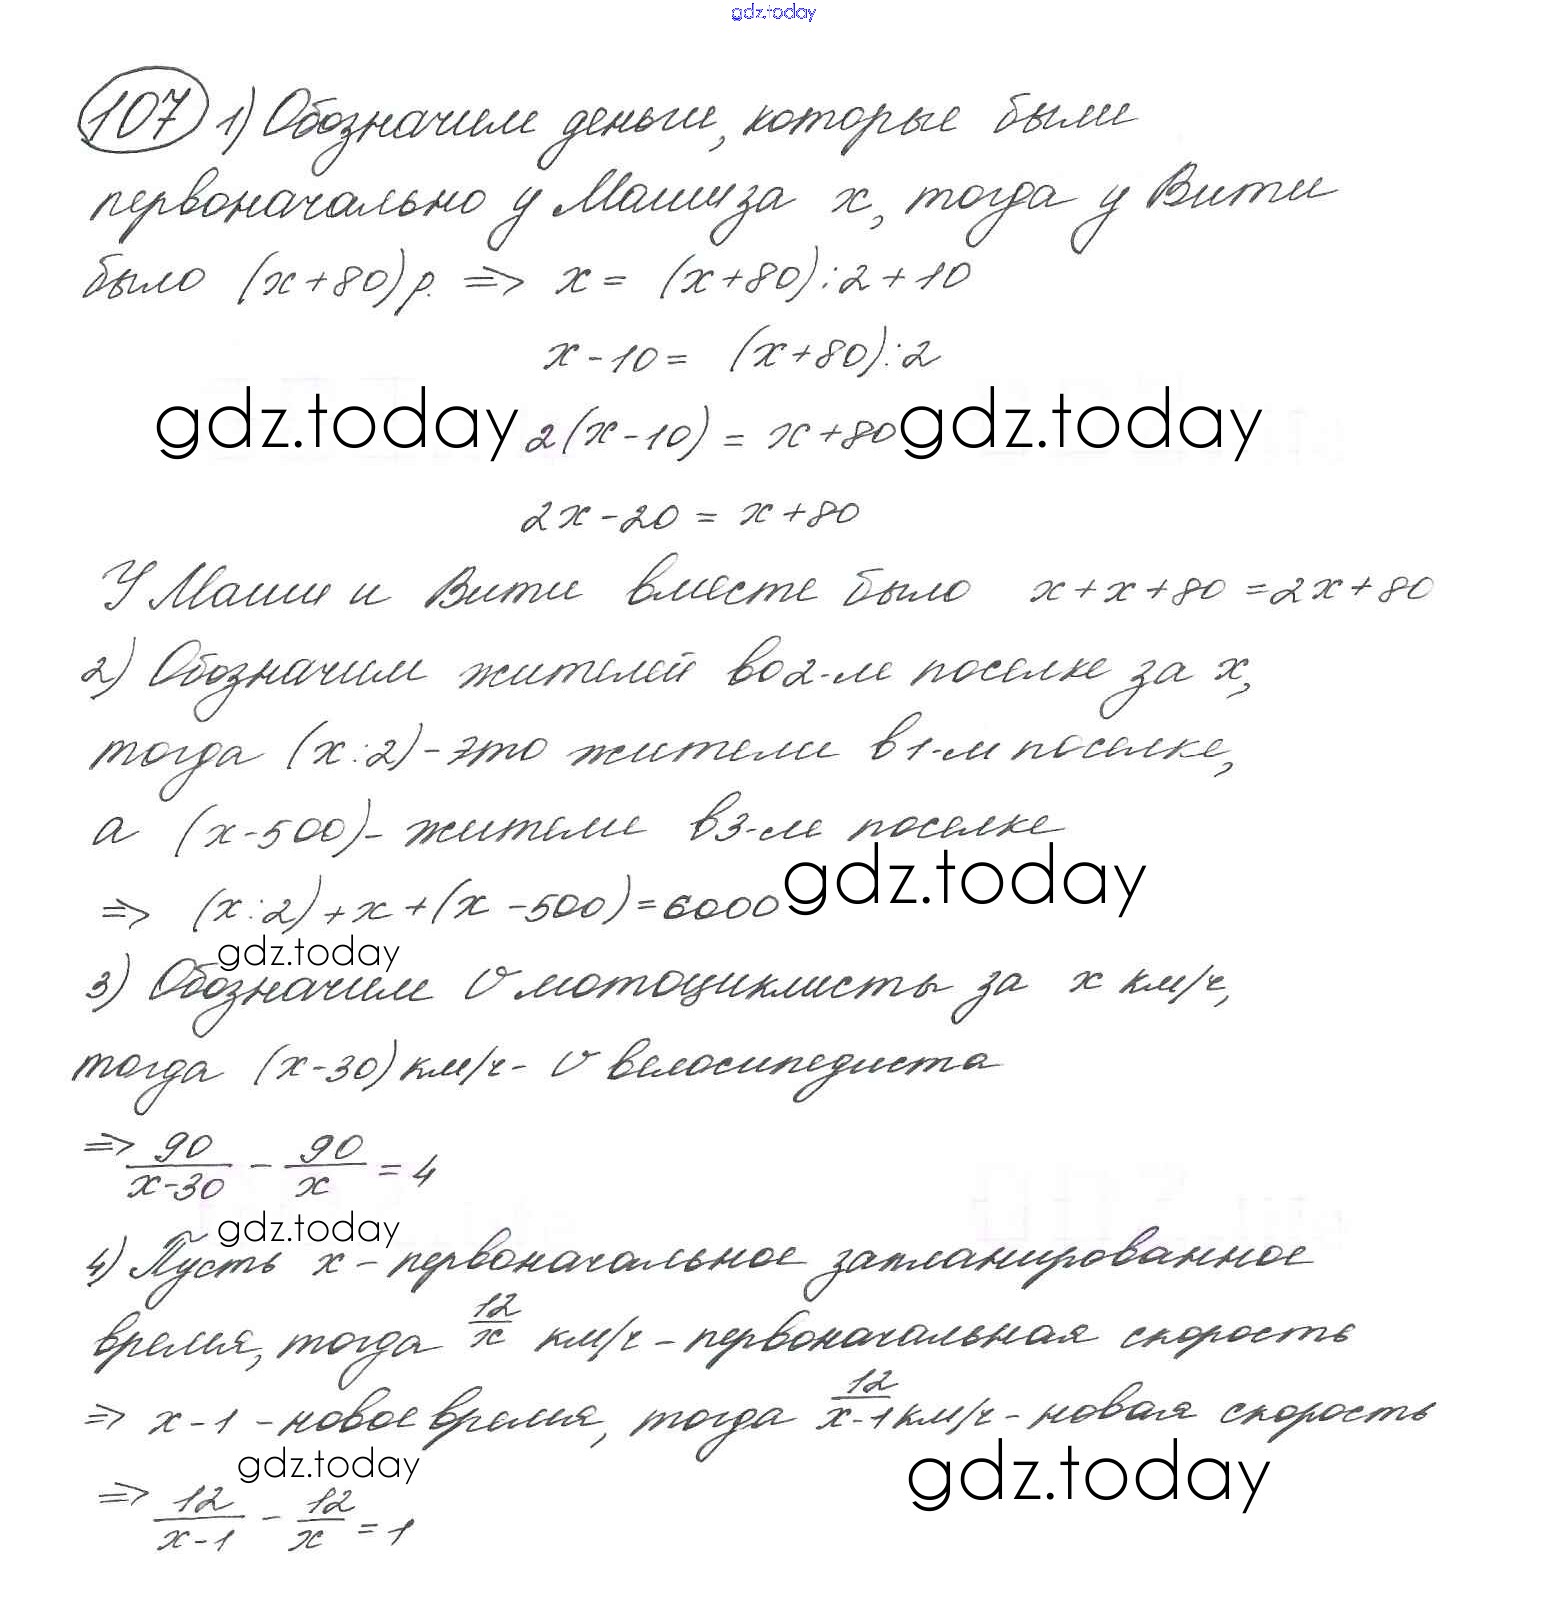 gdz.today
107 1) Обозначим деньги, которые были
первоначально у Маши за x, тогда у Вити
было (x+80) р. => x = (x+80):2+10
x-10 = (x+80):2
gdz.today 2(x-10) = x+80 gdz.today
2x-20 = x+80
У Маши и Вити вместе было x+x+80=2x+80
2) Обозначим жителей во 2-м поселке за x,
тогда (x:2) - это жители в 1-м поселке,
а (x-500) - жители в 3-м поселке
=> (x:2)+x+(x-500)=6000 gdz.today
gdz.today
3) Обозначим v мотоциклисты за x км/ч,
тогда (x-30) км/ч - v велосипедиста
=> 90/(x-30) - 90/x = 4
gdz.today
4) Пусть x - первоначальное запланированное
время, тогда 12/x км/ч - первоначальная скорость
=> x-1 - новое время, тогда 12/(x-1) км/ч - новая скорость
gdz.today gdz.today
=> 12/(x-1) - 12/x = 1